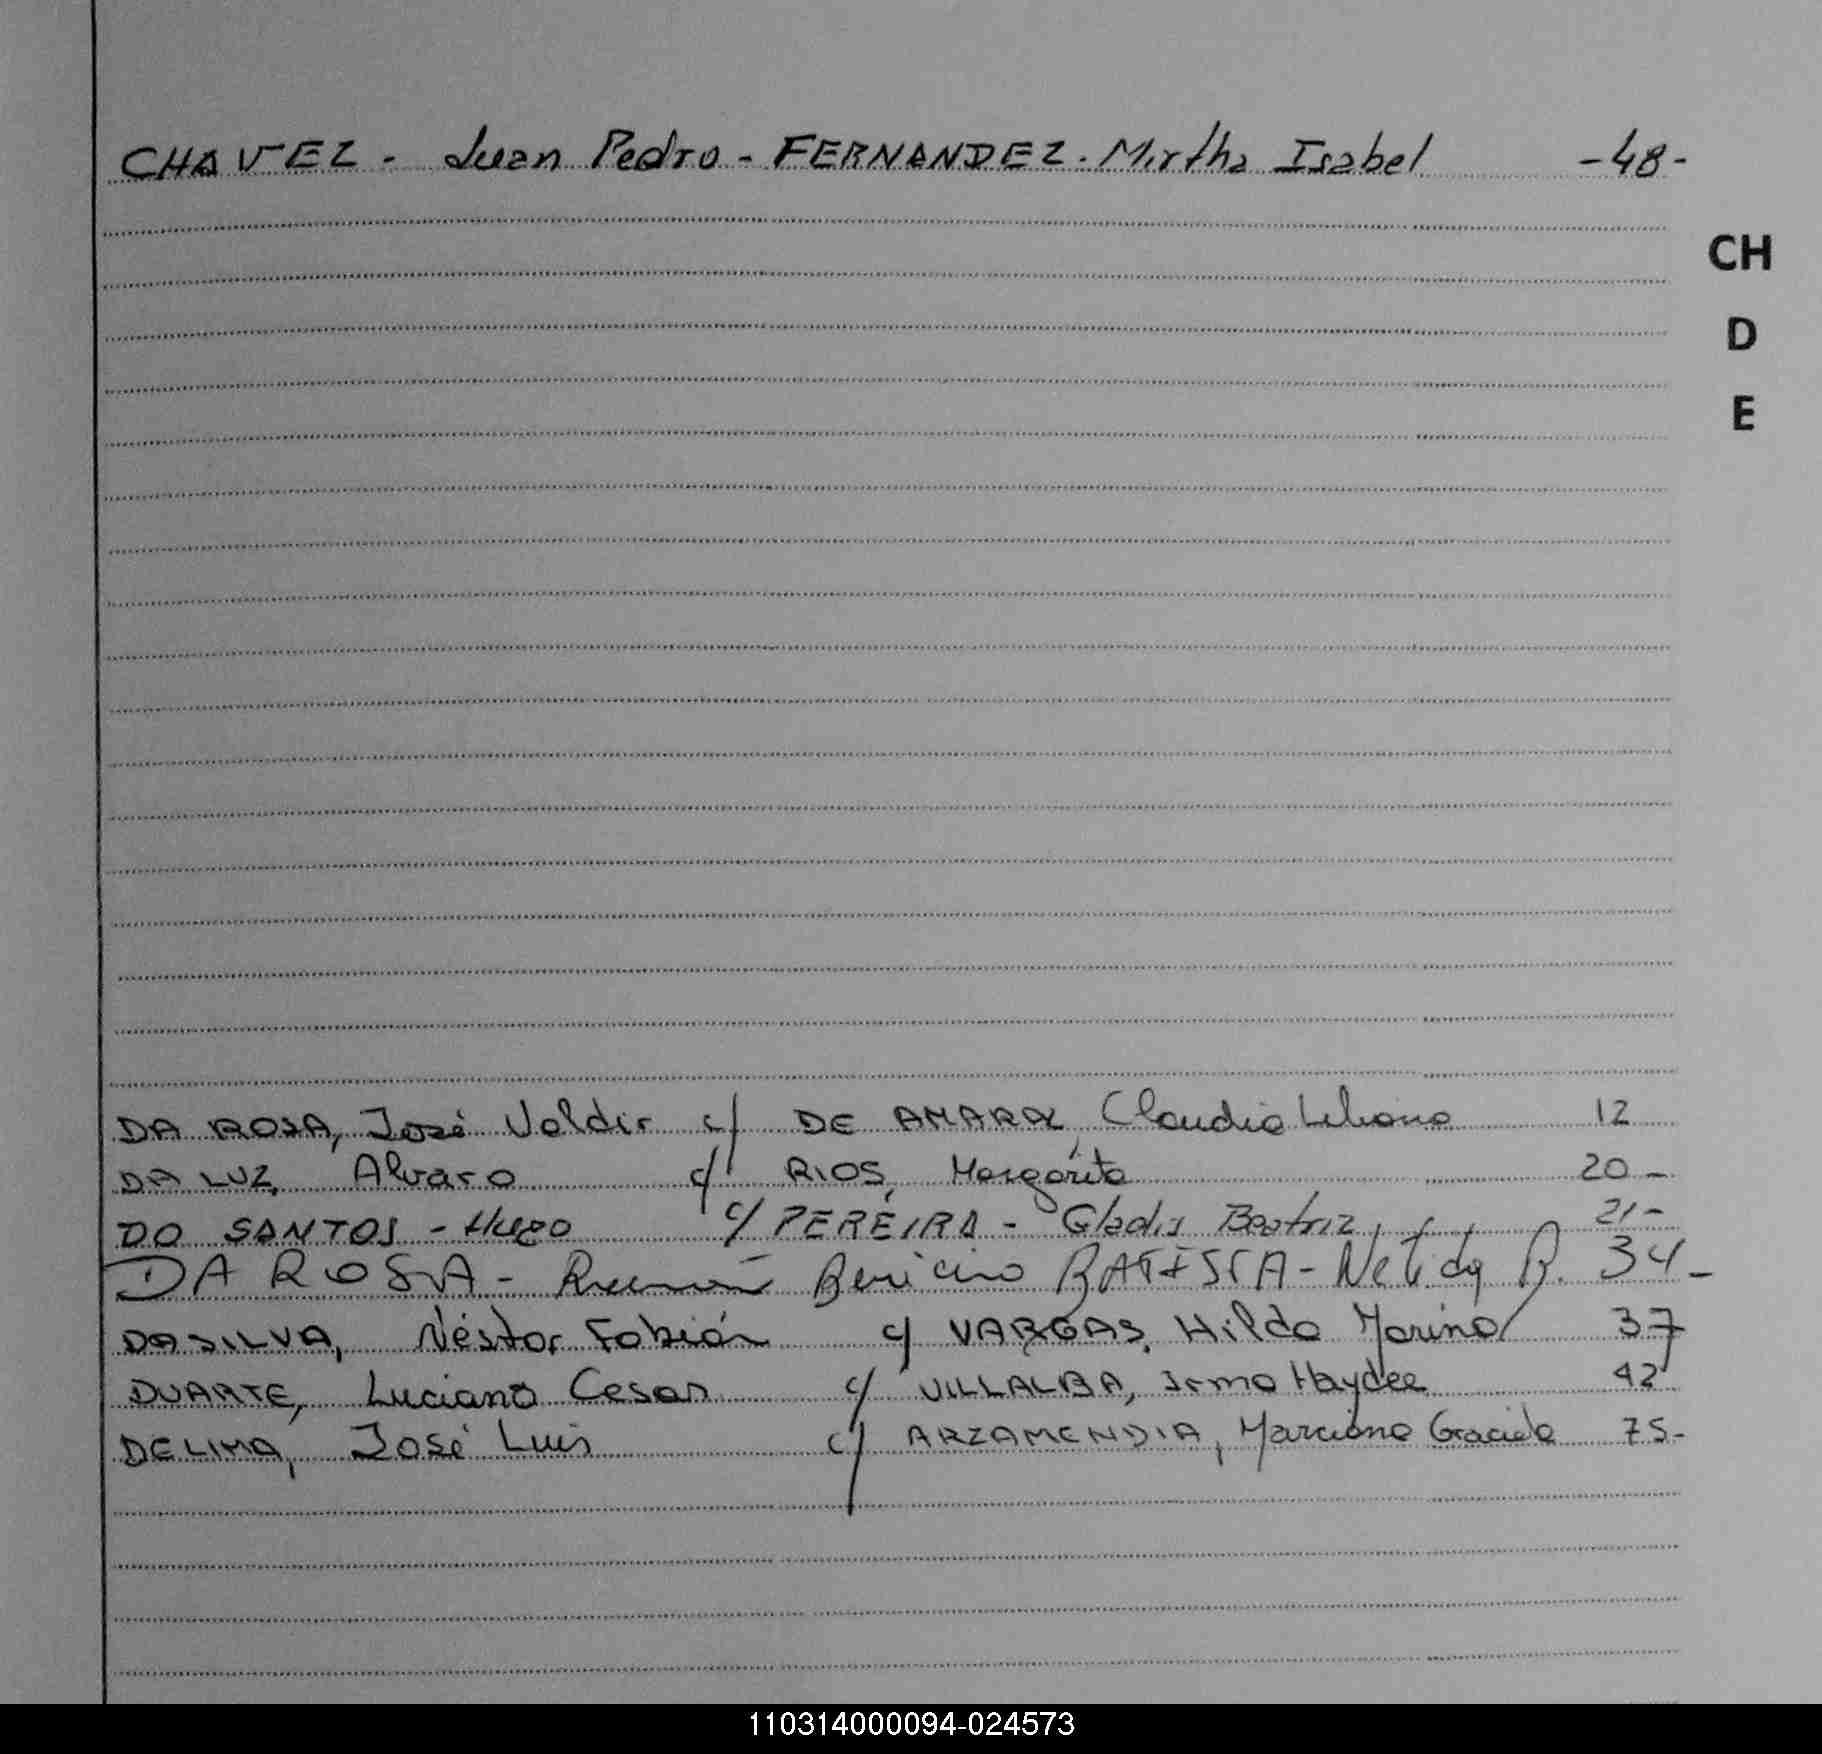 CHAVEZ - Juan Pedro - FERNANDEZ - Mirtha Isabel -48-
CH
D
E
DA ROSA, José Valdir c/ DE AMARAL, Claudia 12
DA LUZ, Alvaro c/ RIOS, Margarita 20-
DO SANTOS - Hugo c/ PEREIRA - Gladis Beatriz 21-
DA ROSA - Ramón BATISTA - Nelida R. 34-
DA SILVA, Néstor Fabián c/ VARGAS, Hilda Marina 37
DUARTE, Luciano Cesar c/ VILLALBA, Irma Haydee 42
DE LIMA, José Luis c/ ARZAMENDIA, Marciana Graciela 75-
110314000094-024573